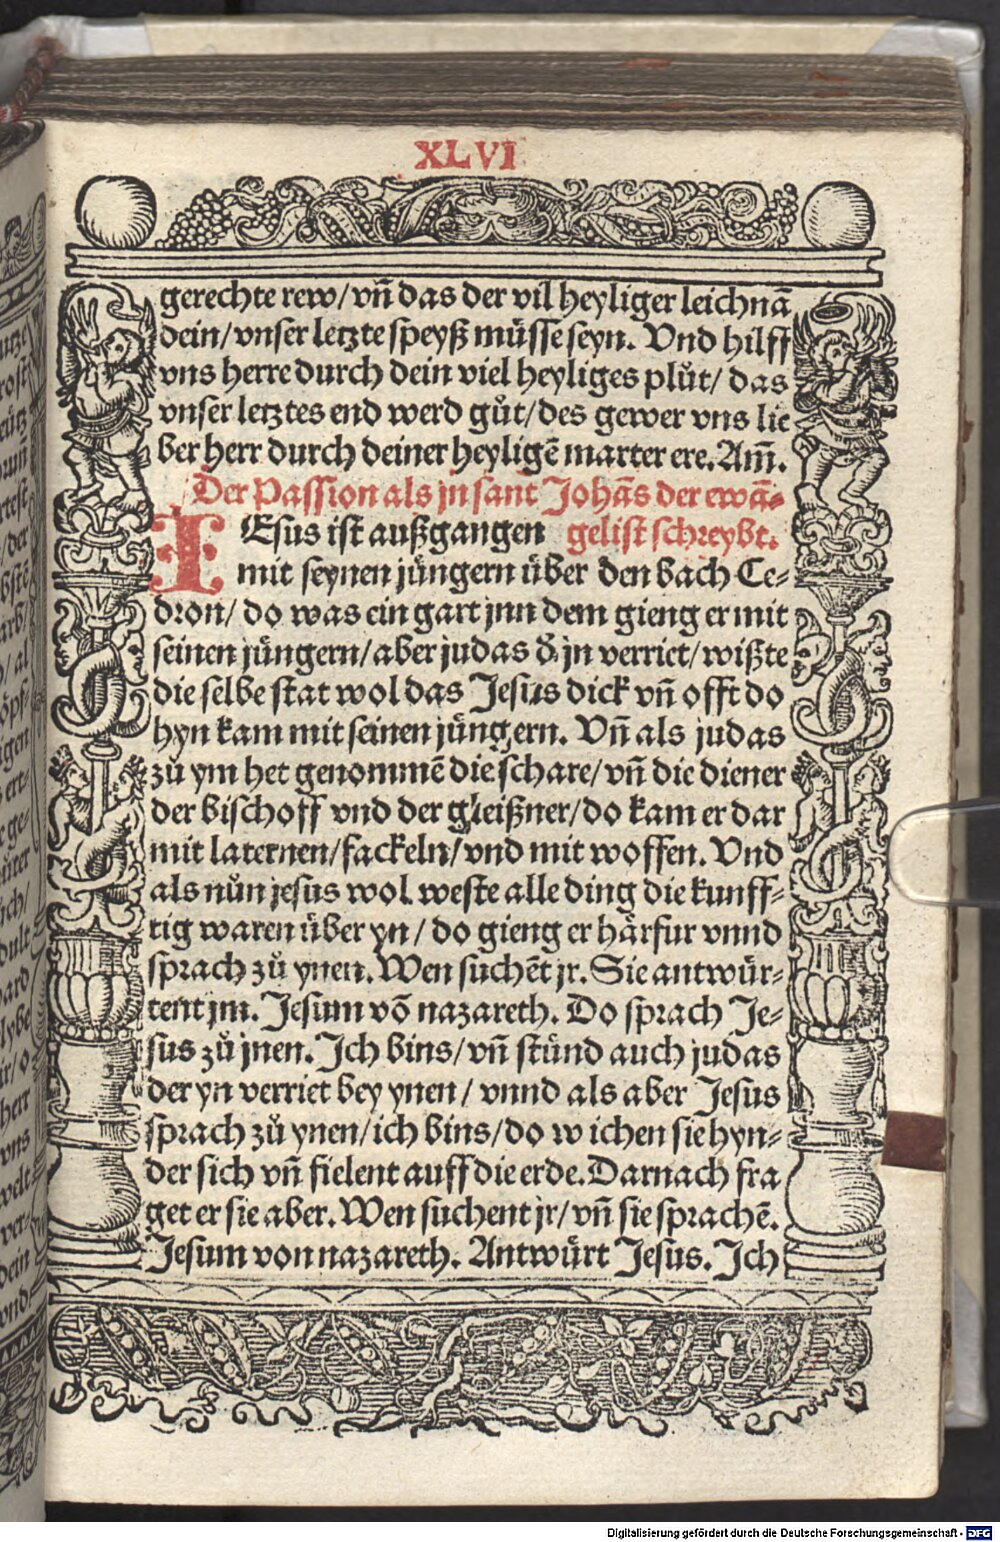 XLVI
gerechte rew/ vñ das der vil heyliger leichnā
dein/ vnser letzte speyß müsse seyn. Vnd hilff
vns herre durch dein viel heyliges plůt/ das
vnser letztes end werd gůt/ des gewer vns lie
ber herr durch deiner heyligē marter ere. Am̄.
Der Passion als jn sant Johās der ewā⸗
IEsus ist außgangen gelist schreybt.
mit seynen jüngern über den bach Ce⸗
dron/ do was ein gart jnn dem gieng er mit
seinen jüngern/ aber judas d̕ jn verriet/ wißte
die selbe stat wol das Jesus dick vñ offt do
hyn kam mit seinen jüngern. Vñ als judas
zů ym het genommē die schare/ vñ die diener
der bischoff vnd der gleißner/ do kam er dar
mit laternen/ fackeln/ vnd mit woffen. Vnd
als nůn jesus wol weste alle ding die kunff⸗
tig waren über yn/ do gieng er härfur vnnd
sprach zů ynen. Wen suchēt jr. Sie antwür⸗
tent jm. Jesum vō nazareth. Do sprach Je⸗
sus zů jnen. Ich bins/ vñ stůnd auch judas
der yn verriet bey ynen/ vnnd als aber Jesus
sprach zů ynen/ ich bins/ do w ichen sie hyn⸗
der sich vñ fielent auff die erde. Darnach fra
get er sie aber. Wen suchent jr/ vñ sie sprachē.
Jesum von nazareth. Antwürt Jesus. Ich
Digitalisierung gefördert durch die Deutsche Forschungsgemeinschaft - DFG